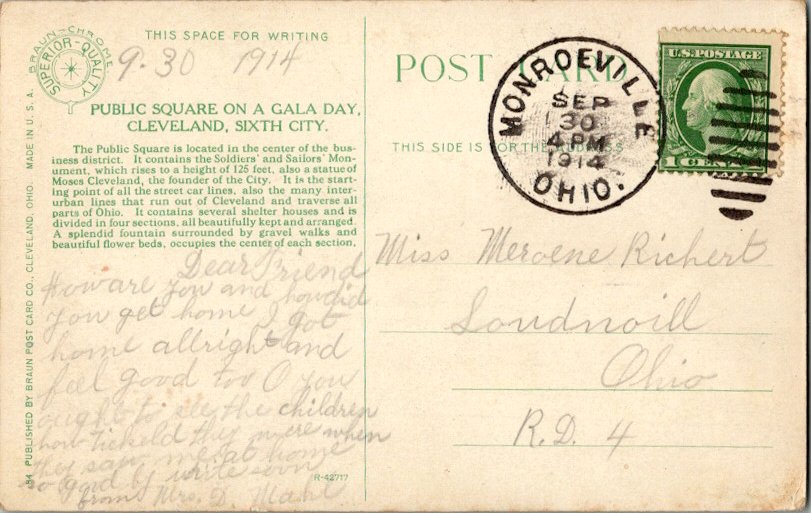 THIS SPACE FOR WRITING
BRAUN-CHROME
SUPERIOR-QUALITY
9-30 1914
PUBLIC SQUARE ON A GALA DAY,
CLEVELAND, SIXTH CITY.
The Public Square is located in the center of the bus-
iness district. It contains the Soldiers' and Sailors' Mon-
ument, which rises to a height of 125 feet, also a statue of
Moses Cleveland, the founder of the City. It is the start-
ing point of all the street car lines, also the many inter-
urban lines that run out of Cleveland and traverse all
parts of Ohio. It contains several shelter houses and is
divided in four sections, all beautifully kept and arranged.
A splendid fountain surrounded by gravel walks and
beautiful flower beds, occupies the center of each section.
Dear Friend
How are you and how did
you get home I got
home allright and
feel good too O you
ought to see the children
how tickeld they were when
they saw me at home
so good by write soon
from Mrs. D. Mahl
R-42717
84 PUBLISHED BY BRAUN POST CARD CO., CLEVELAND, OHIO. MADE IN U. S. A.
POST CARD
THIS SIDE IS FOR THE ADDRESS
MONROEVILLE
SEP
30
4 PM
1914
OHIO.
U.S. POSTAGE
1 CENT 1
Miss Meroene Richert
Loudnoill
Ohio
R.D. 4